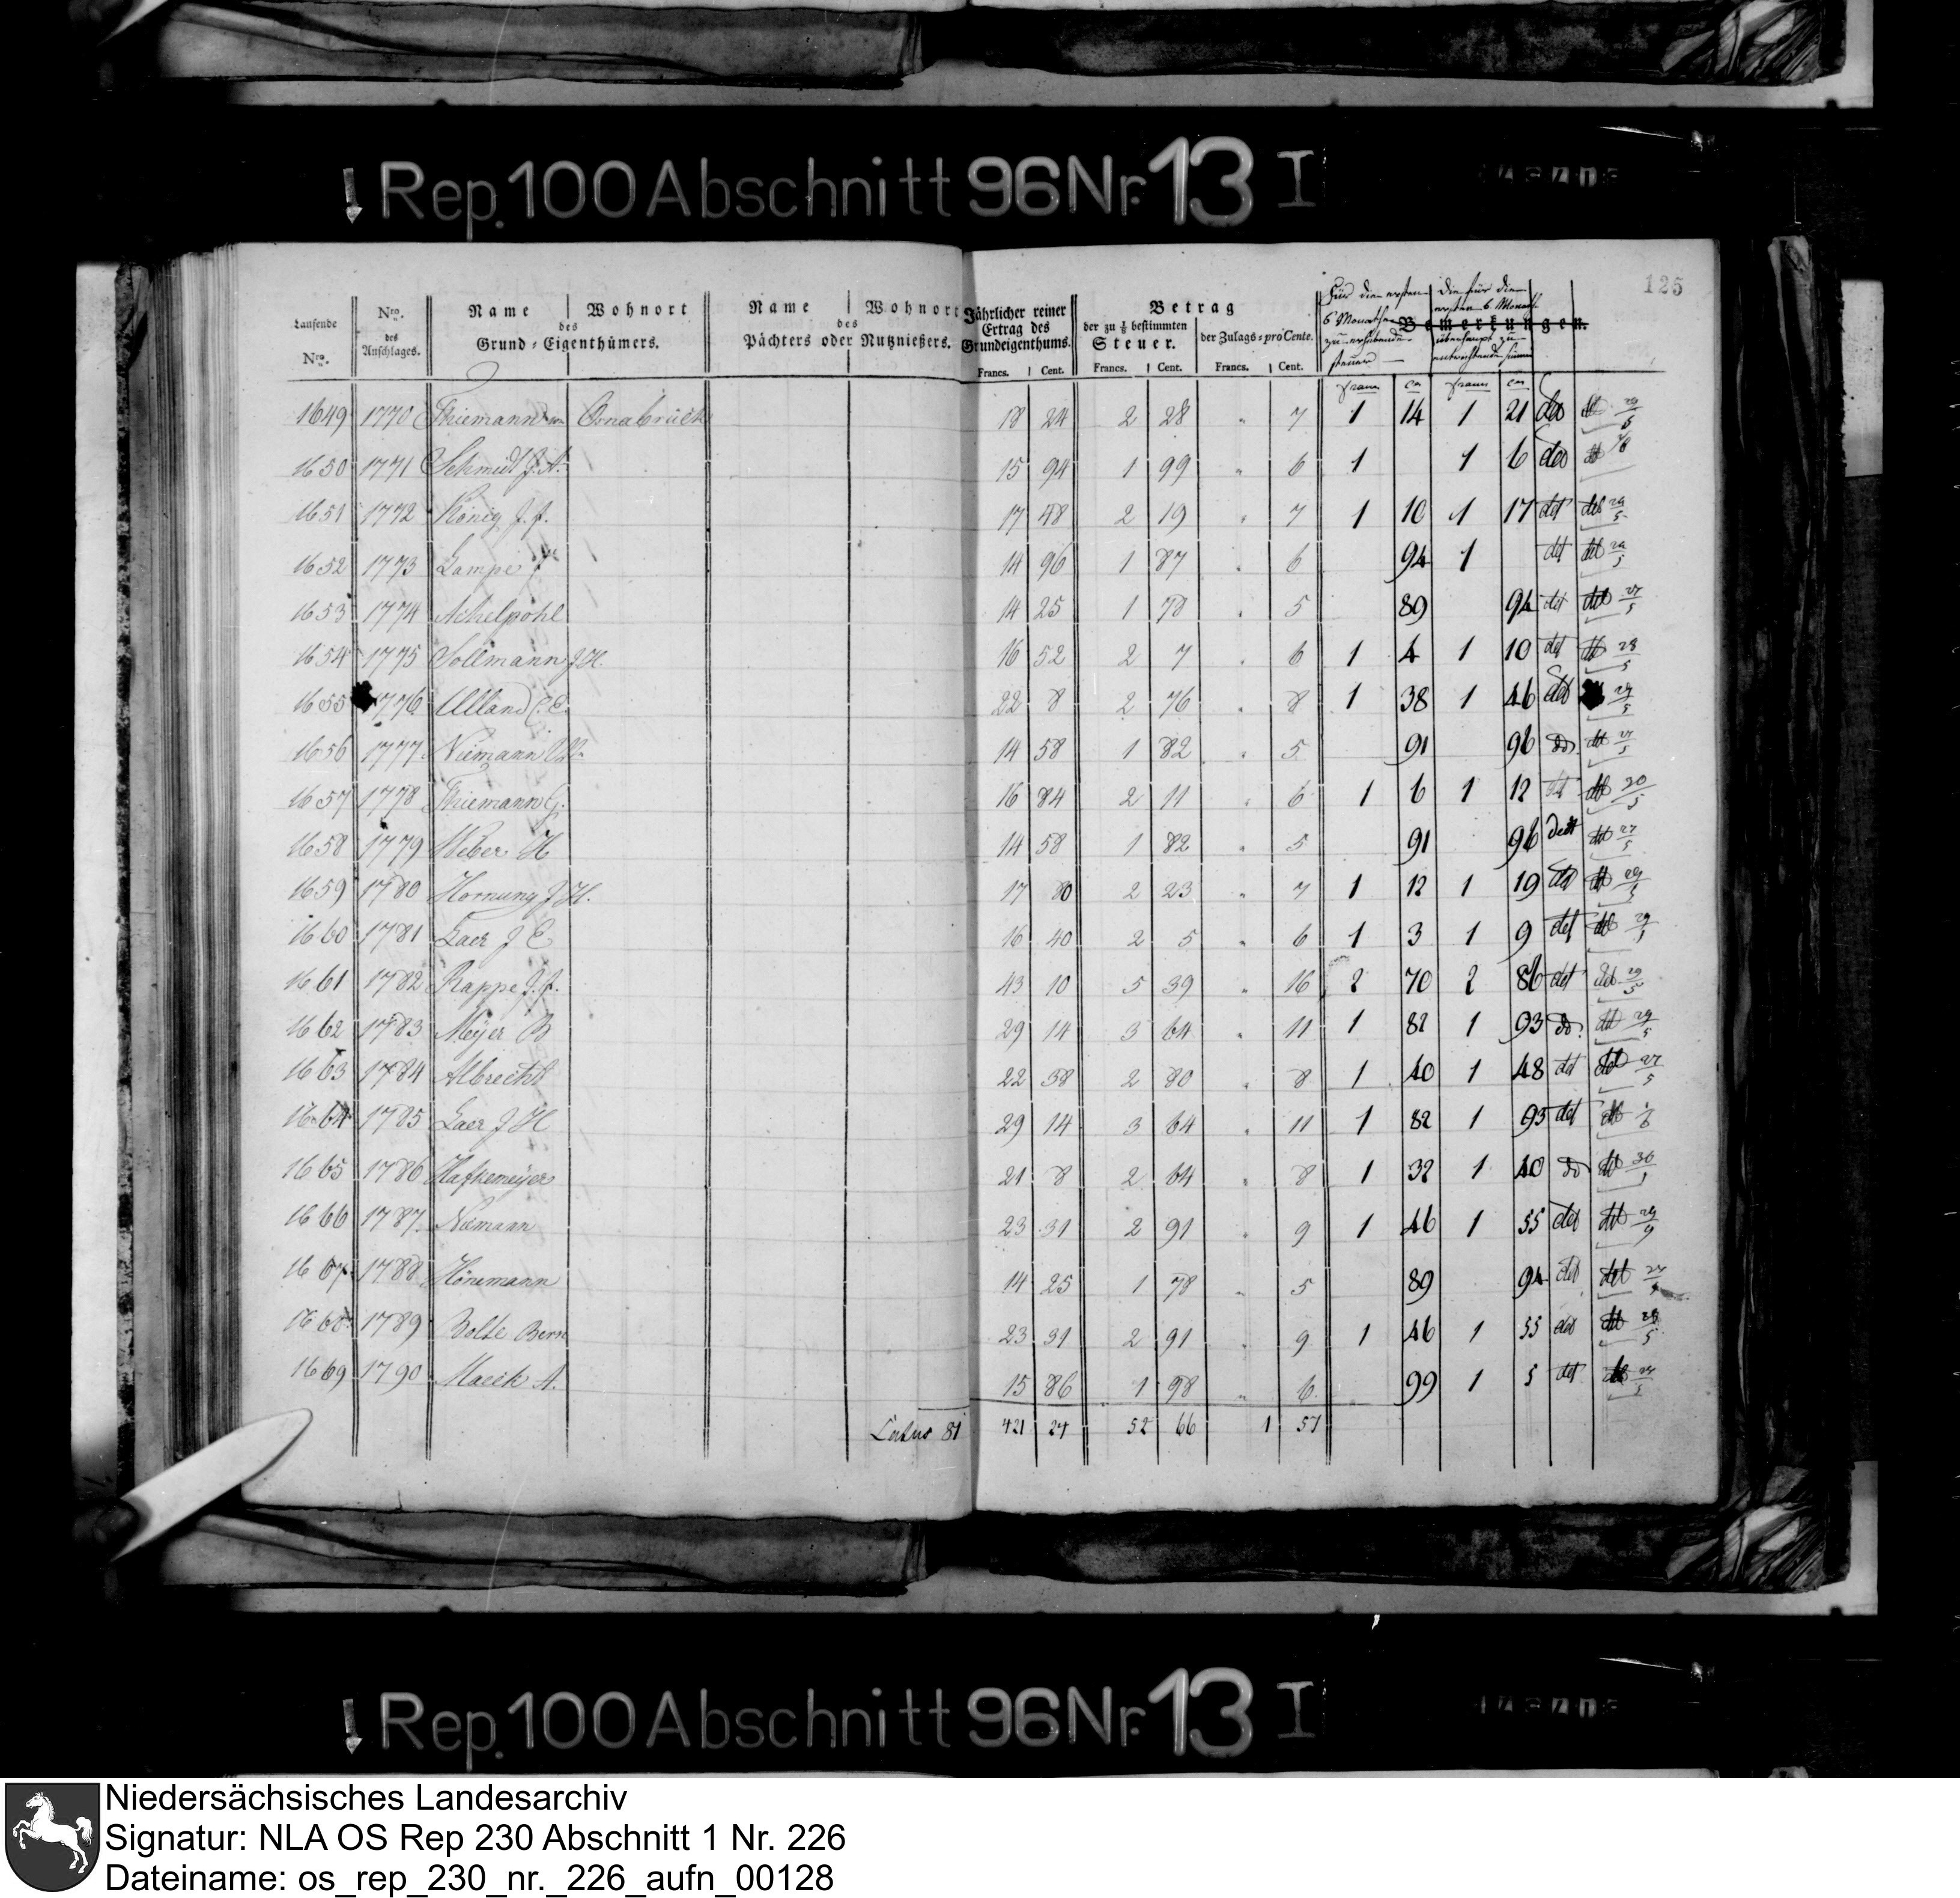 Rep. 100 Abschnitt 96 Nr. 13 I
125
Laufende Nro.
Nro. des Anschlages.
Name Wohnort
des
Grund-Eigenthümers.
Name Wohnort
des
Pächters oder Nutznießers.
Jährlicher reiner Ertrag des Grundeigenthums.
Francs. Cent.
Betrag
der zu ⅛ bestimmten Steuer. der Zulags-pro Cente.
Francs. Cent. Francs. Cent.
Bemerkungen.
Für die ersten 6 Monathe zu erhebende Steuer
die für die ersten 6 Monath überhaupt zu entrichtende Summe
1649 1770 Thiemann Osnabrück 18 24 2 28 " 7 1 14 1 21
1650 1771 Schmidt J. A. 15 94 1 99 " 6 1 1 6
1651 1772 König J. f. 17 48 2 19 " 7 1 10 1 17 det
1652 1773 Lampe 14 96 1 87 " 6 94 1 det
1653 1774 Achelpohl 14 25 1 78 " 5 89 94 det
1654 1775 Sollmann J H. 16 52 2 7 " 6 1 4 1 10 det
1655 1776 Ulland C. E. 22 8 2 76 " 8 1 38 1 46
1656 1777 Niemann 14 58 1 82 " 5 91 96 do.
1657 1778 Thiemann G. 16 84 2 11 " 6 1 6 1 12
1658 1779 Weber H 14 58 1 82 " 5 91 96
1659 1780 Hornung J H. 17 80 2 23 " 7 1 12 1 19
1660 1781 Laer J E 16 40 2 5 " 6 1 3 1 9 det
1661 1782 Rappe J. f. 43 10 5 39 " 16 2 70 2 86 det
1662 1783 Meyer B 29 14 3 64 " 11 1 82 1 93 do.
1663 1784 Albrecht 22 38 2 80 " 8 1 40 1 48 det
1664 1785 Laer J H 29 14 3 64 " 11 1 82 1 93 det
1665 1786 Hafkemeyer 21 8 2 64 " 8 1 32 1 40 do
1666 1787 Niemann 23 31 2 91 " 9 1 46 1 55 det
1667 1788 Hönemann 14 25 1 78 " 5 89 94 det
1668 1789 Bolte Bern 23 31 2 91 " 9 1 46 1 55 det
1669 1790 Maeck A. 15 86 1 98 " 6 99 1 5 det
Latus 81 421 24 52 66 1 57
Rep. 100 Abschnitt 96 Nr. 13 I
Niedersächsisches Landesarchiv
Signatur: NLA OS Rep 230 Abschnitt 1 Nr. 226
Dateiname: os_rep_230_nr._226_aufn_00128